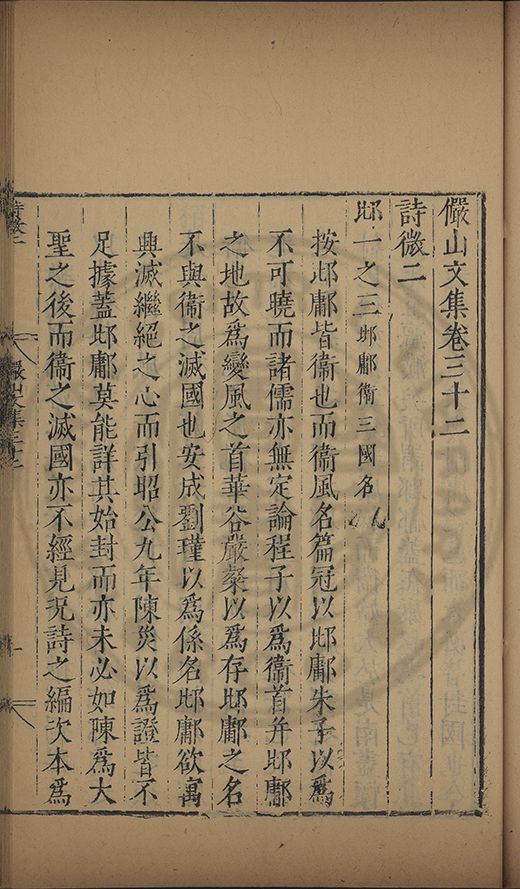 儼山文集卷三十二
詩微二
邶一之三邶鄘衛三國名
按邶鄘皆衛也而衞風名篇冠以邶鄘朱子以爲
不可曉而諸儒亦無定論程子以爲衞首并邶鄘
之地故爲變風之首華谷嚴粲以爲存邶鄘之名
不與衞之滅國也安成劉瑾以爲係名邶鄘欲寓
興滅繼絕之心而引昭公九年陳災以爲證皆不
足據蓋邶鄘莫能詳其始封而亦未必如陳爲大
聖之後而衞之滅國亦不經見況詩之編次本爲